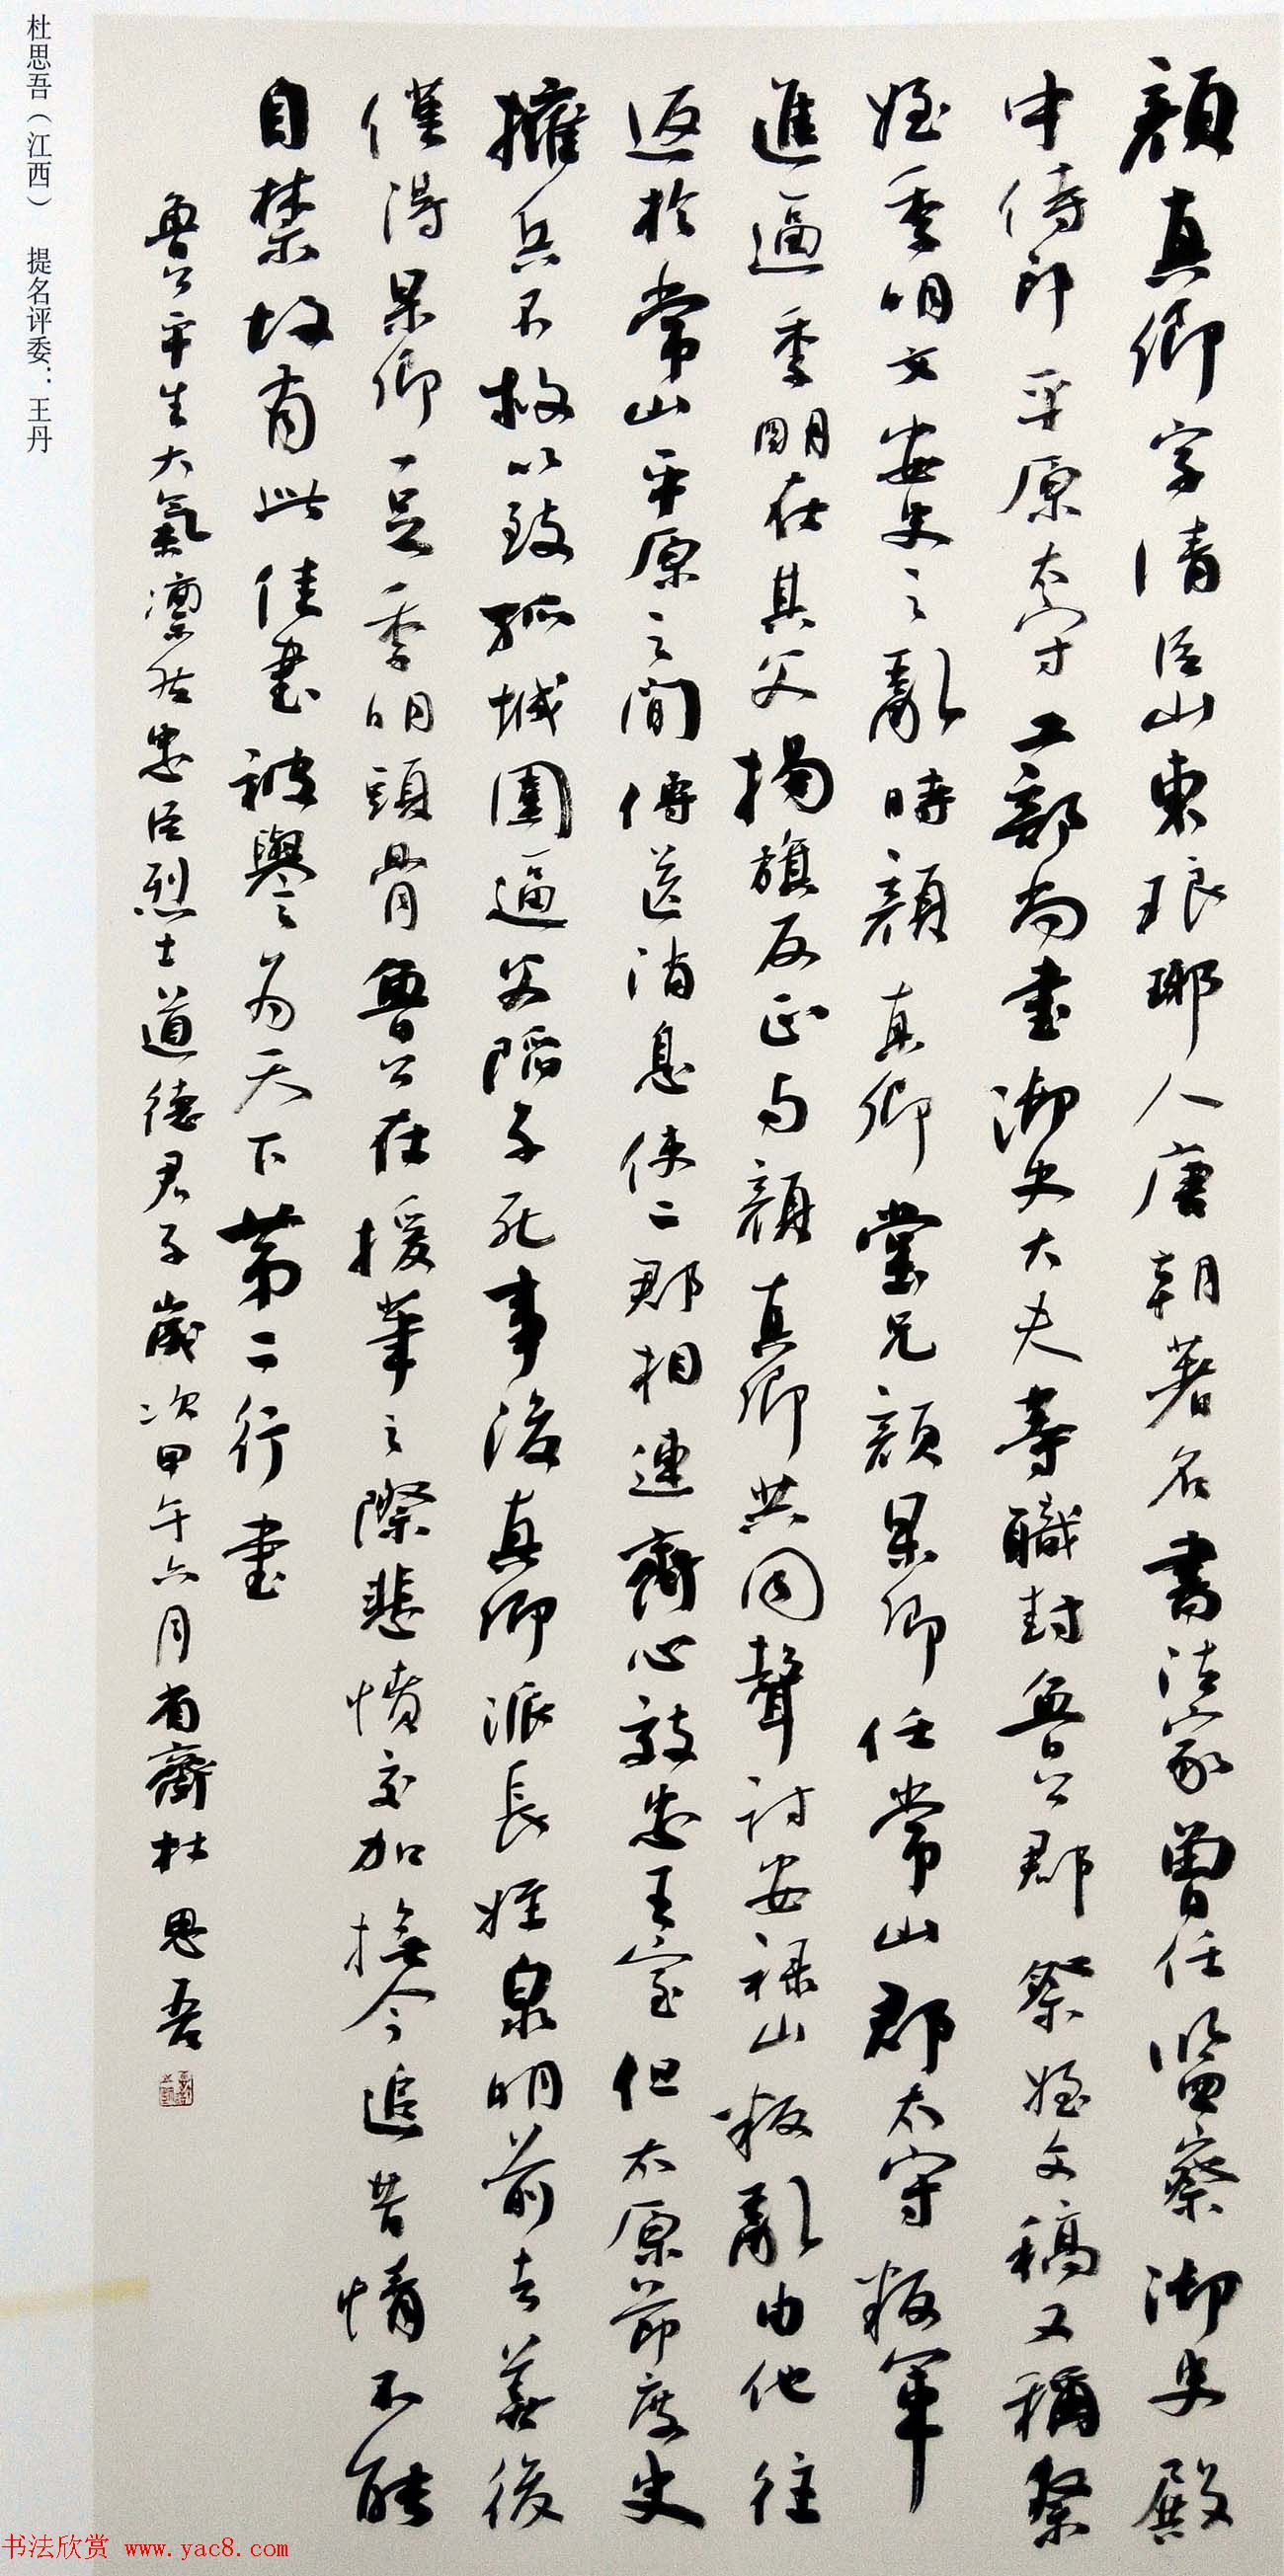 顔真卿字清臣山東琅琊人唐朝著名書法家曾任監察御史殿
中侍郎平原太守工部尚書御史大夫等職封魯公郡祭姪文稿又稱祭
姪季明文安史之亂時顔真卿堂兄顔杲卿任常山郡太守叛軍
進逼季明在其父揚旗反正与顔真卿共同聲討安禄山叛亂由他往
返於常山平原之間傳送消息使二郡相連齊心效忠王室但太原節度史
擁兵不救以致孤城圍逼父陷子死事後真卿派長姪泉明前去善後
僅得杲卿一足季明頭骨魯公在援筆之際悲憤交加撫今追昔情不能
自禁故有此佳書被譽為天下第二行書
魯公平生大氣凛然忠臣烈士道德君子歲次甲午六月有齋杜思吾
杜思吾（江西） 提名评委：王丹
书法欣赏 www.yac8.com